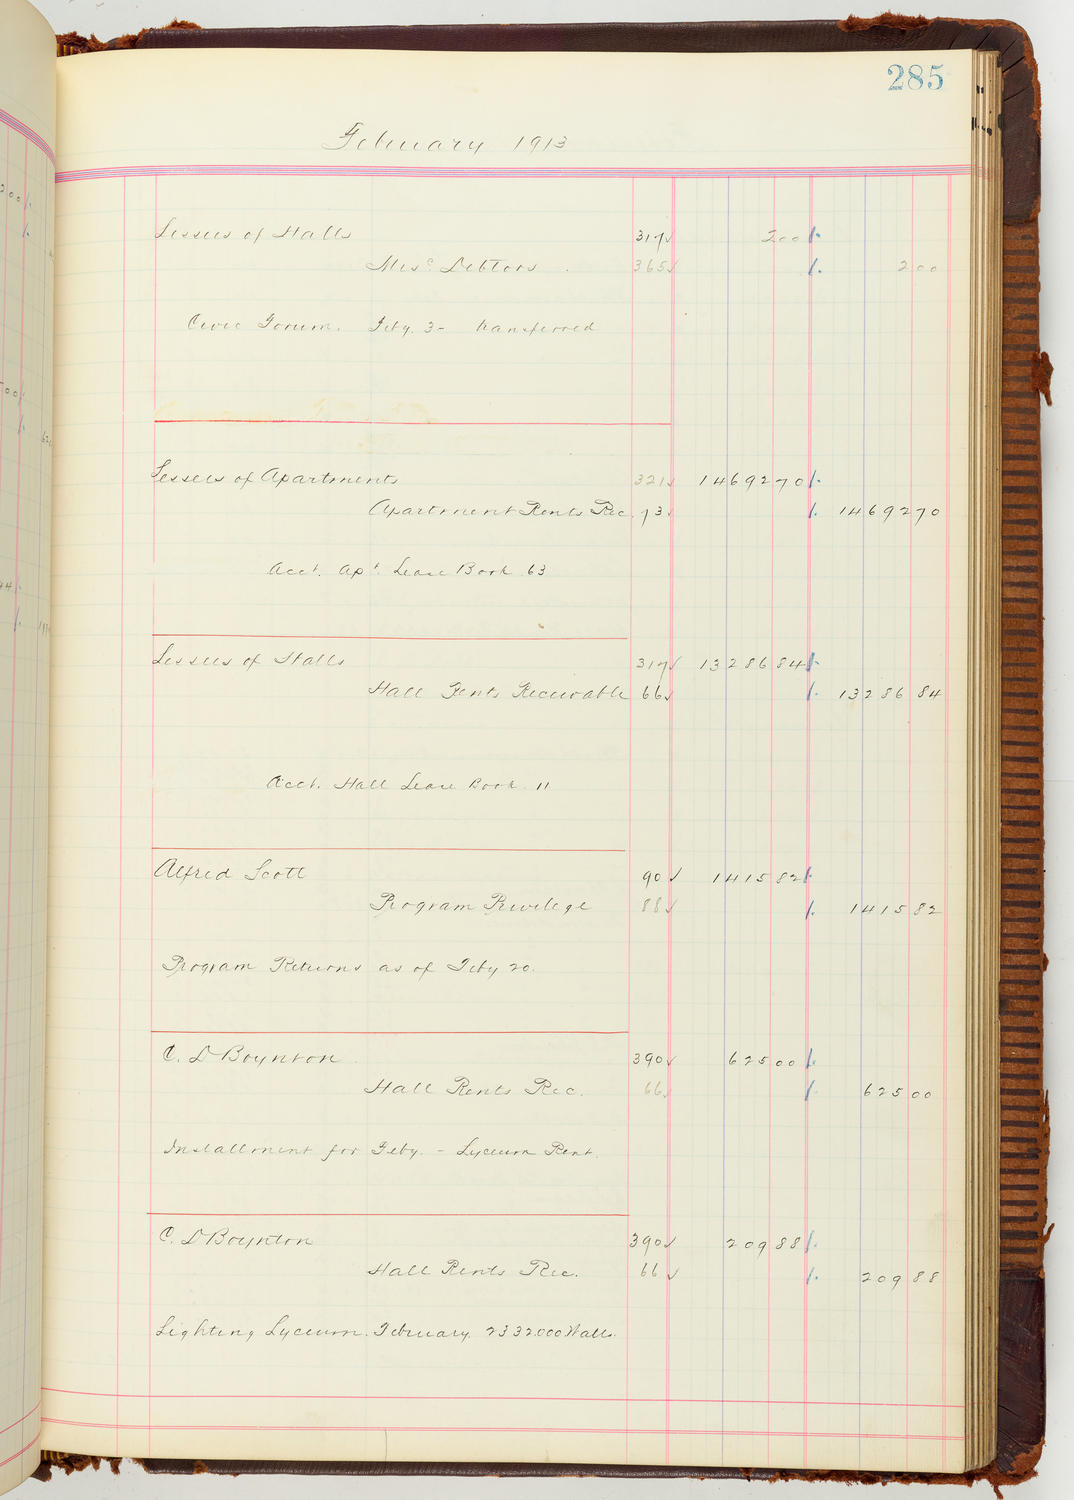 285
February 1913
Lessees of Halls 317✓ 200
Misc Debtors 365✓ 200
Civic Forum. Feby. 3 - transferred
Lessees of Apartments 321✓ 1469270
Apartment Rents Rec. 73✓ 1469270
Acct. Apt. Lease Book 63
Lessees of Halls 317✓ 1328684
Hall Rents Receivable 66✓ 1328684
Acct. Hall Lease Book 11
Alfred Scott 90✓ 141582
Program Privilege 88✓ 141582
Program Returns as of Feby 20.
C. D Boynton 390✓ 62500
Hall Rents Rec. 66✓ 62500
Installment for Feby. - Lyceum Rent.
C. D Boynton 390✓ 20988
Hall Rents Rec. 66✓ 20988
Lighting Lyceum. February. 2332.000 Watts.